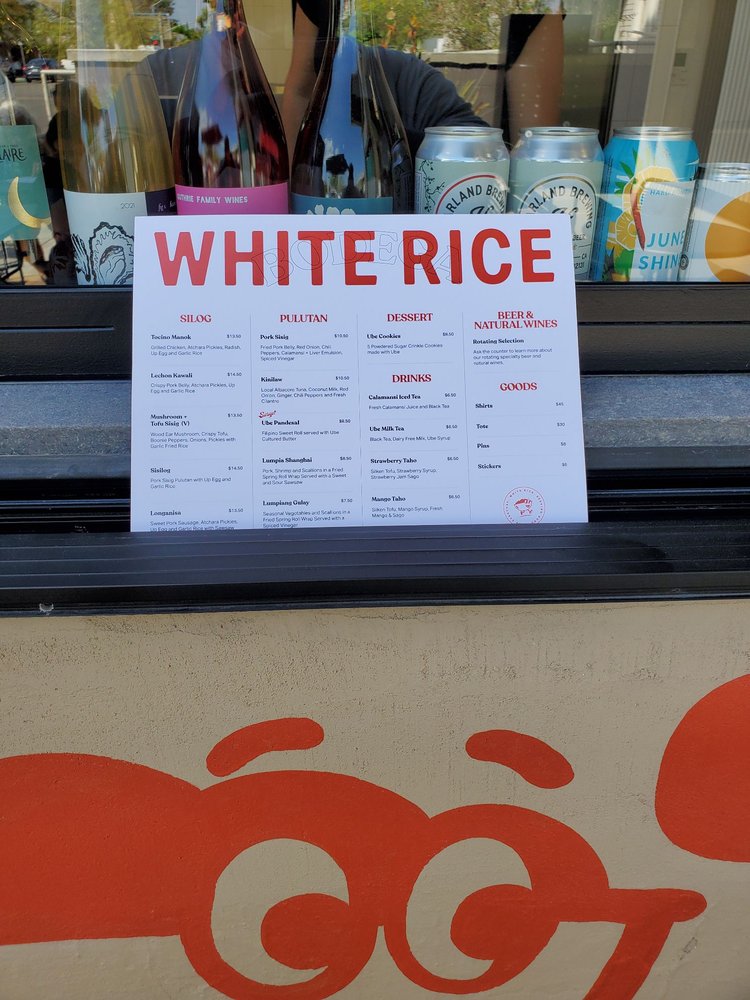 LAIRE
2021
GUTHRIE FAMILY WINES
HARD
JUNE
SHINE
WHITE RICE
BODEGA
SILOG
Tocino Manok $13.50
Grilled Chicken, Atchara Pickles, Radish,
Up Egg and Garlic Rice
Lechon Kawali $14.50
Crispy Pork Belly, Atchara Pickles, Up
Egg and Garlic Rice
Mushroom +
Tofu Sisig (V) $13.50
Wood Ear Mushroom, Crispy Tofu,
Boonie Peppers, Onions, Pickles with
Garlic Fried Rice
Sisilog $14.50
Pork Sisig Pulutan with Up Egg and
Garlic Rice
Longanisa $13.50
Sweet Pork Sausage, Atchara Pickles,
Up Egg and Garlic Rice with Sawsaw
PULUTAN
Pork Sisig $10.50
Fried Pork Belly, Red Onion, Chili
Peppers, Calamansi + Liver Emulsion,
Spiced Vinegar
Kinilaw $10.50
Local Albacore Tuna, Coconut Milk, Red
Onion, Ginger, Chili Peppers and Fresh
Cilantro
Ube Pandesal $8.50
Filipino Sweet Roll served with Ube
Cultured Butter
Lumpia Shanghai $8.50
Pork, Shrimp and Scallions in a Fried
Spring Roll Wrap Served with a Sweet
and Sour Sawsaw
Lumpiang Gulay $7.50
Seasonal Vegetables and Scallions in a
Fried Spring Roll Wrap Served with a
Spiced Vinegar
DESSERT
Ube Cookies $8.50
5 Powdered Sugar Crinkle Cookies
made with Ube
DRINKS
Calamansi Iced Tea $6.50
Fresh Calamansi Juice and Black Tea
Ube Milk Tea $6.50
Black Tea, Dairy Free Milk, Ube Syrup
Strawberry Taho $6.50
Silken Tofu, Strawberry Syrup,
Strawberry Jam Sago
Mango Taho $6.50
Silken Tofu, Mango Syrup, Fresh
Mango & Sago
BEER &
NATURAL WINES
Rotating Selection
Ask the counter to learn more about
our rotating specialty beer and
natural wines.
GOODS
Shirts $45
Tote $30
Pins $8
Stickers